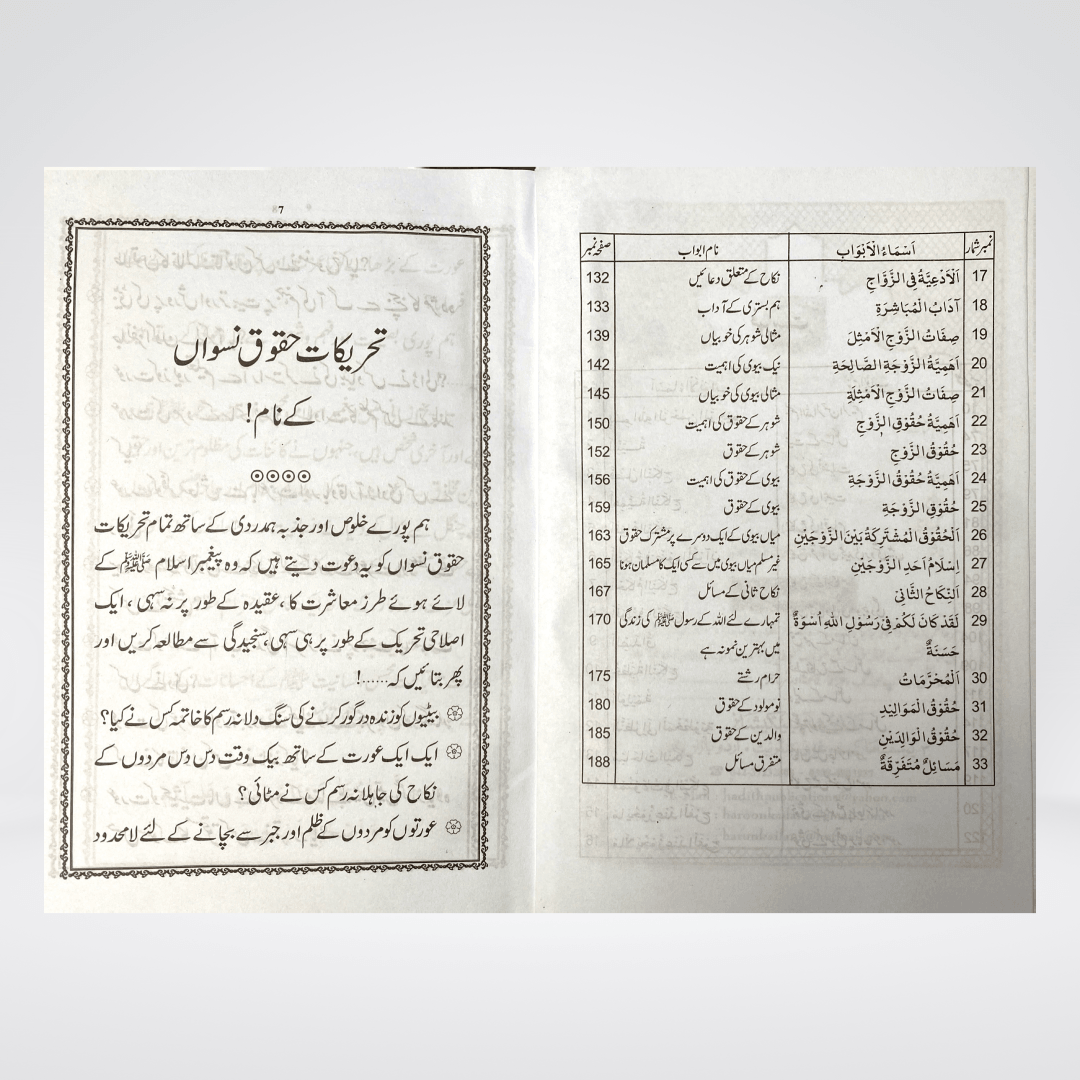 نمبر شمار اَسْمَاءُ الْاَبْوَاب نام ابواب صفحہ نمبر
17 اَلْاَدْعِيَّةُ فِى الزَّوَّاجِ نکاح کے متعلق دعائیں 132
18 آدَابُ الْمُبَاشِرَةِ ہم بستری کے آداب 133
19 صِفَاتُ الزَّوْجِ الْاَمْثِلَ مثالی شوہر کی خوبیاں 139
20 اَهَمِيَّةُ الزَّوْجَةِ الصَّالِحَةِ نیک بیوی کی اہمیت 142
21 صِفَاتُ الزَّوْجِ الْاَمْثِلَةِ مثالی بیوی کی خوبیاں 145
22 اَهَمِيَّةُ حُقُوْقِ الزَّوْجِ شوہر کے حقوق کی اہمیت 150
23 حُقُوْقُ الزَّوْجِ شوہر کے حقوق 152
24 اَهَمِيَّةُ حُقُوْقُ الزَّوْجَةِ بیوی کے حقوق کی اہمیت 156
25 حُقُوْقِ الزَّوْجَةِ بیوی کے حقوق 159
26 اَلْحُقُوْقُ الْمُشْتَرِكَةُ بَيْنَ الزَّوْجَيْنِ میاں بیوی کے ایک دوسرے پر مشترکہ حقوق 163
27 اِسْلَامُ اَحَدِ الزَّوْجَيْنِ غیر مسلم میاں بیوی میں سے کسی ایک کا مسلمان ہونا 165
28 اَلنِّكَاحُ الثَّانِىْ نکاح ثانی کے مسائل 167
29 لَقَدْ كَانَ لَكُمْ فِىْ رَسُوْلِ اللّٰهِ اُسْوَةٌ تمہارے لئے اللہ کے رسول ﷺ کی زندگی 170
حَسَنَةٌ میں بہترین نمونہ ہے
30 اَلْمُحَرَّمَاتُ حرام رشتے 175
31 حُقُوْقُ الْمَوَالِيْدِ نومولود کے حقوق 180
32 حُقُوْقُ الْوَالِدَيْنِ والدین کے حقوق 185
33 مَسَائِلٌ مُتَفَرِّقَةٌ متفرق مسائل 188
7
تحریکات حقوق نسواں
کے نام!
ہم پورے خلوص اور جذبہ ہمدردی کے ساتھ تمام تحریکات
حقوق نسواں کو یہ دعوت دیتے ہیں کہ وہ پیغمبر اسلام ﷺ کے
لائے ہوئے طرز معاشرت کا، عقیدہ کے طور پر نہ سہی، ایک
اصلاحی تحریک کے طور پر ہی سہی، سنجیدگی سے مطالعہ کریں اور
پھر بتائیں کہ......!
بیٹیوں کو زندہ درگور کرنے کی سنگ دلانہ رسم کا خاتمہ کس نے کیا؟
ایک ایک عورت کے ساتھ بیک وقت دس دس مردوں کے
نکاح کی جاہلانہ رسم کس نے مٹائی؟
عورتوں کو مردوں کے ظلم اور جبر سے بچانے کے لئے لامحدود